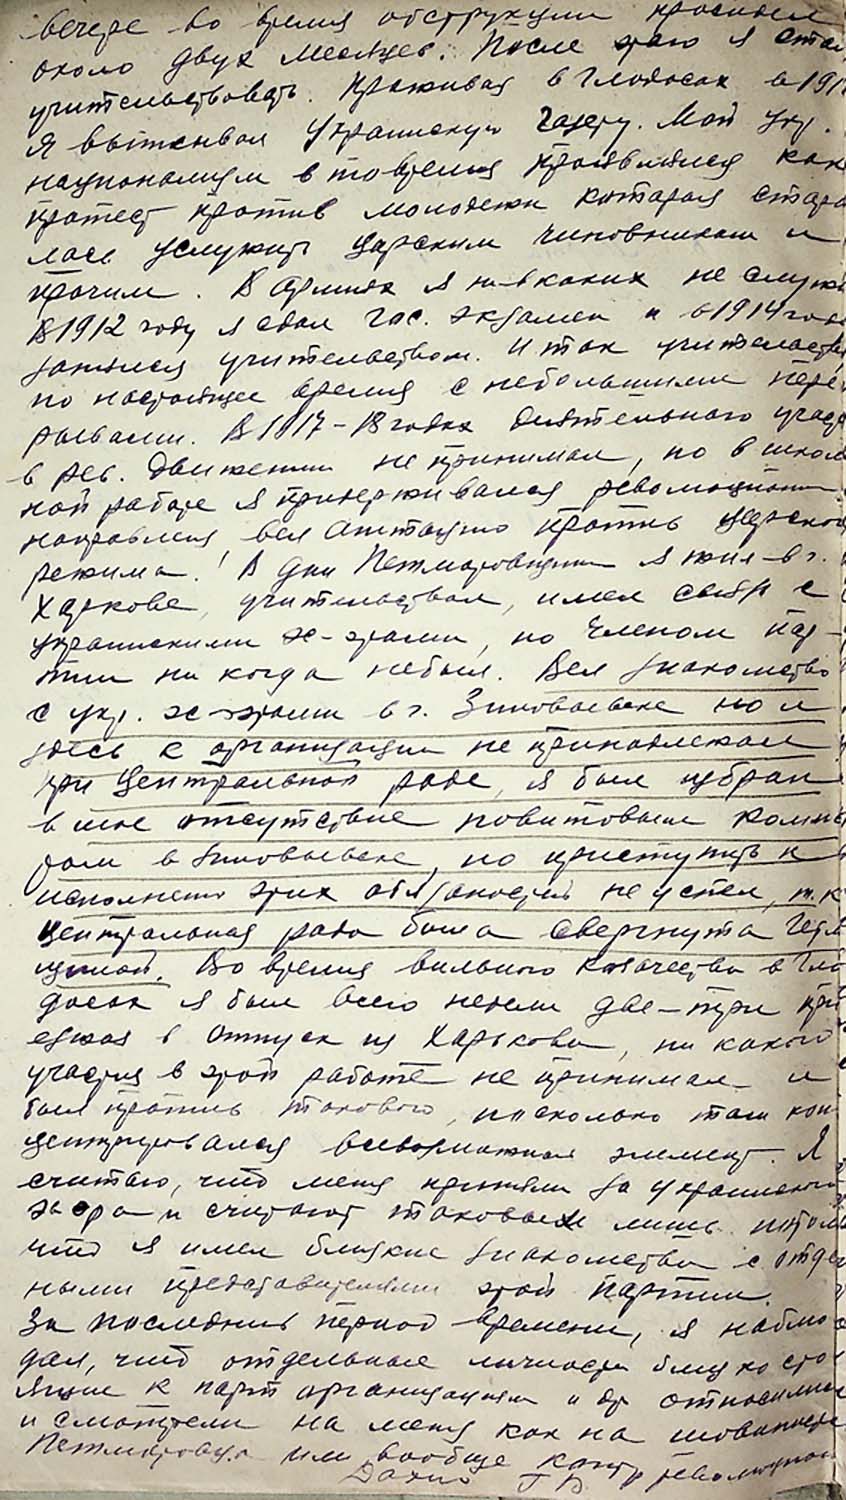 вечере во время обструкции просидел
около двух месяцев. После этого я стал
учительствовать. Проживая в Глодосах в 191
я выписывал Украинскую газету. Мой укр.
национализм в то время проявлялся как
протест против молодежи которая стара
лась услужить царским чиновникам и
прочим. В армиях я ни в каких не служи
В 1912 году я сдал гос. экзамен и в 1914 году
занялся учительством. И так учительствую
по настоящее время с небольшими пере
рывами. В 1917-18 годах деятельного участ
в рев. движении не принимал, но в школь
ной работе я придерживался революционн
направления вел агитацию против царского
режима. В дни Петлюровщины я жил в г.
Харкове, учительствовал, имел связи с
украинскими эс-эрами, но членом пар-
тии ни когда не был. Вел знакомство
с укр. эс-эрами в г. Зиновьевске но и
здесь к организации не принадлежал
при Центральной раде, я был избран
в мое отсутствие повитовым комис
ром в Зиновьевске, но приступить к
исполнению этих обязаностей не успел, т.к
центральная рада была свергнута Гетм
щиной. Во время вильного козачества в Гло
досах я был всего недели две-три при
езжая в отпуск из Харькова, ни какого
участия в этой работе не принимал и
был против такового, поскольку там кон
центрировался всевозможный элемент. Я
считаю, что меня приняли за украинского
эсэра и считают таковым лишь потому
что я имел близкие знакомства с отде
ными представителями этой партии.
За последний период времени, я наблю
дал, что отдельные личности близко сто
ящие к парт организациям и др относились
и смотрели на меня как на шовиниста
Петлюровца или вообще контр революцион